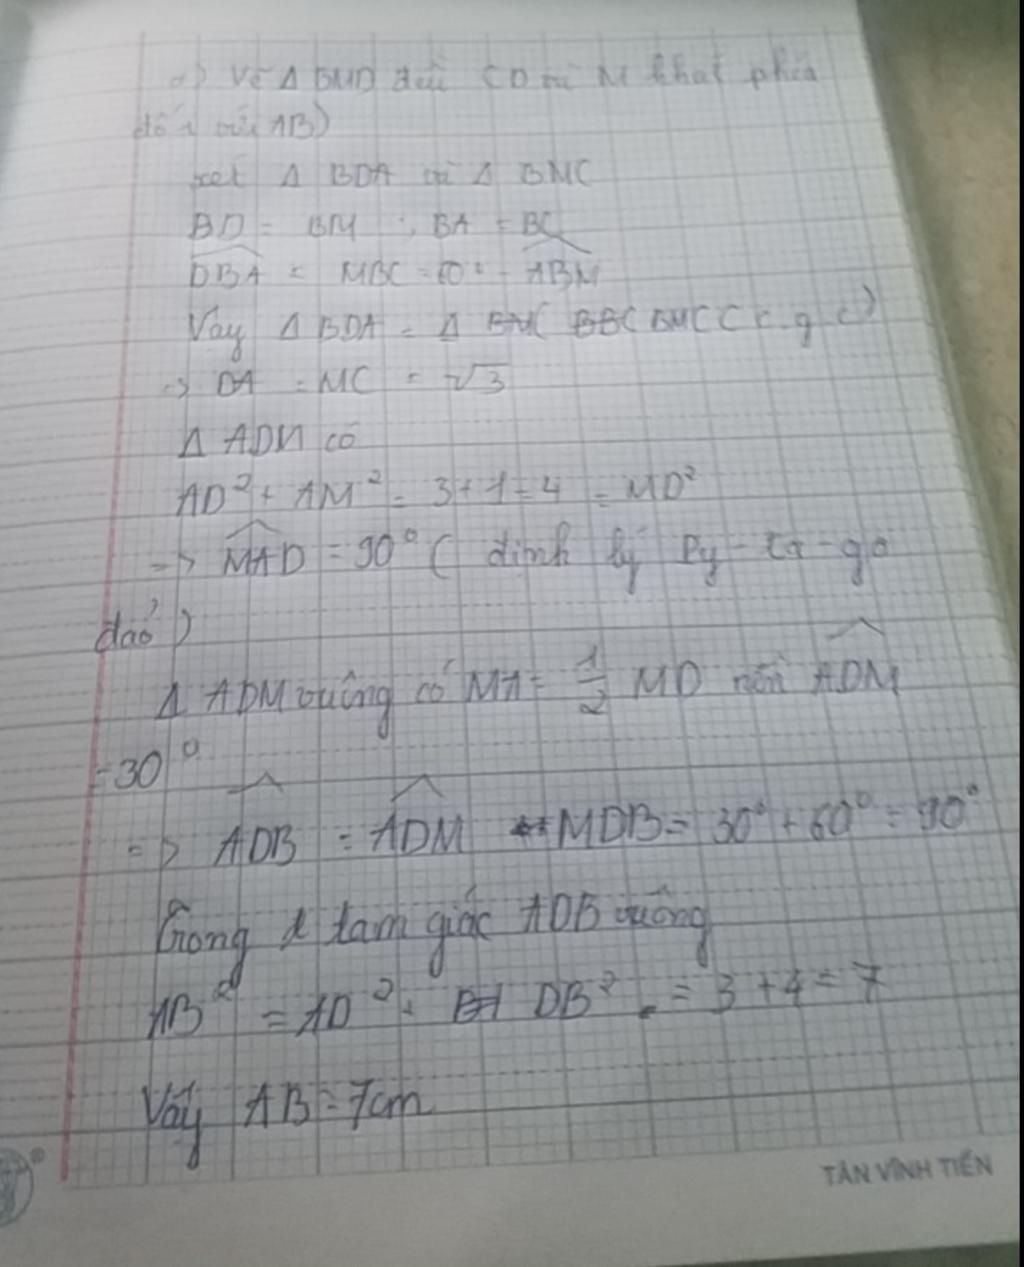 a) Vẽ Δ BMD đều (D và M khác phía
đối với AB)
xét Δ BDA và Δ BMC
BD = BM ; BA = BC
DBA = MBC = 60° - ABM
Vậy Δ BDA = Δ BMC (c g c)
=> DA = MC = √3
Δ ADM có
AD² + AM² = 3 + 1 = 4 = MD²
=> MAD = 90° ( định lý Py - ta - go
đảo )
Δ ADM vuông có MA = 1/2 MD nên ADM
= 30°
=> ADB = ADM + MDB = 30° + 60° = 90°
Trong tam giác ADB vuông
AB² = AD² + DB² = 3 + 4 = 7
Vậy AB = 7cm
TÂN VĨNH TIẾN